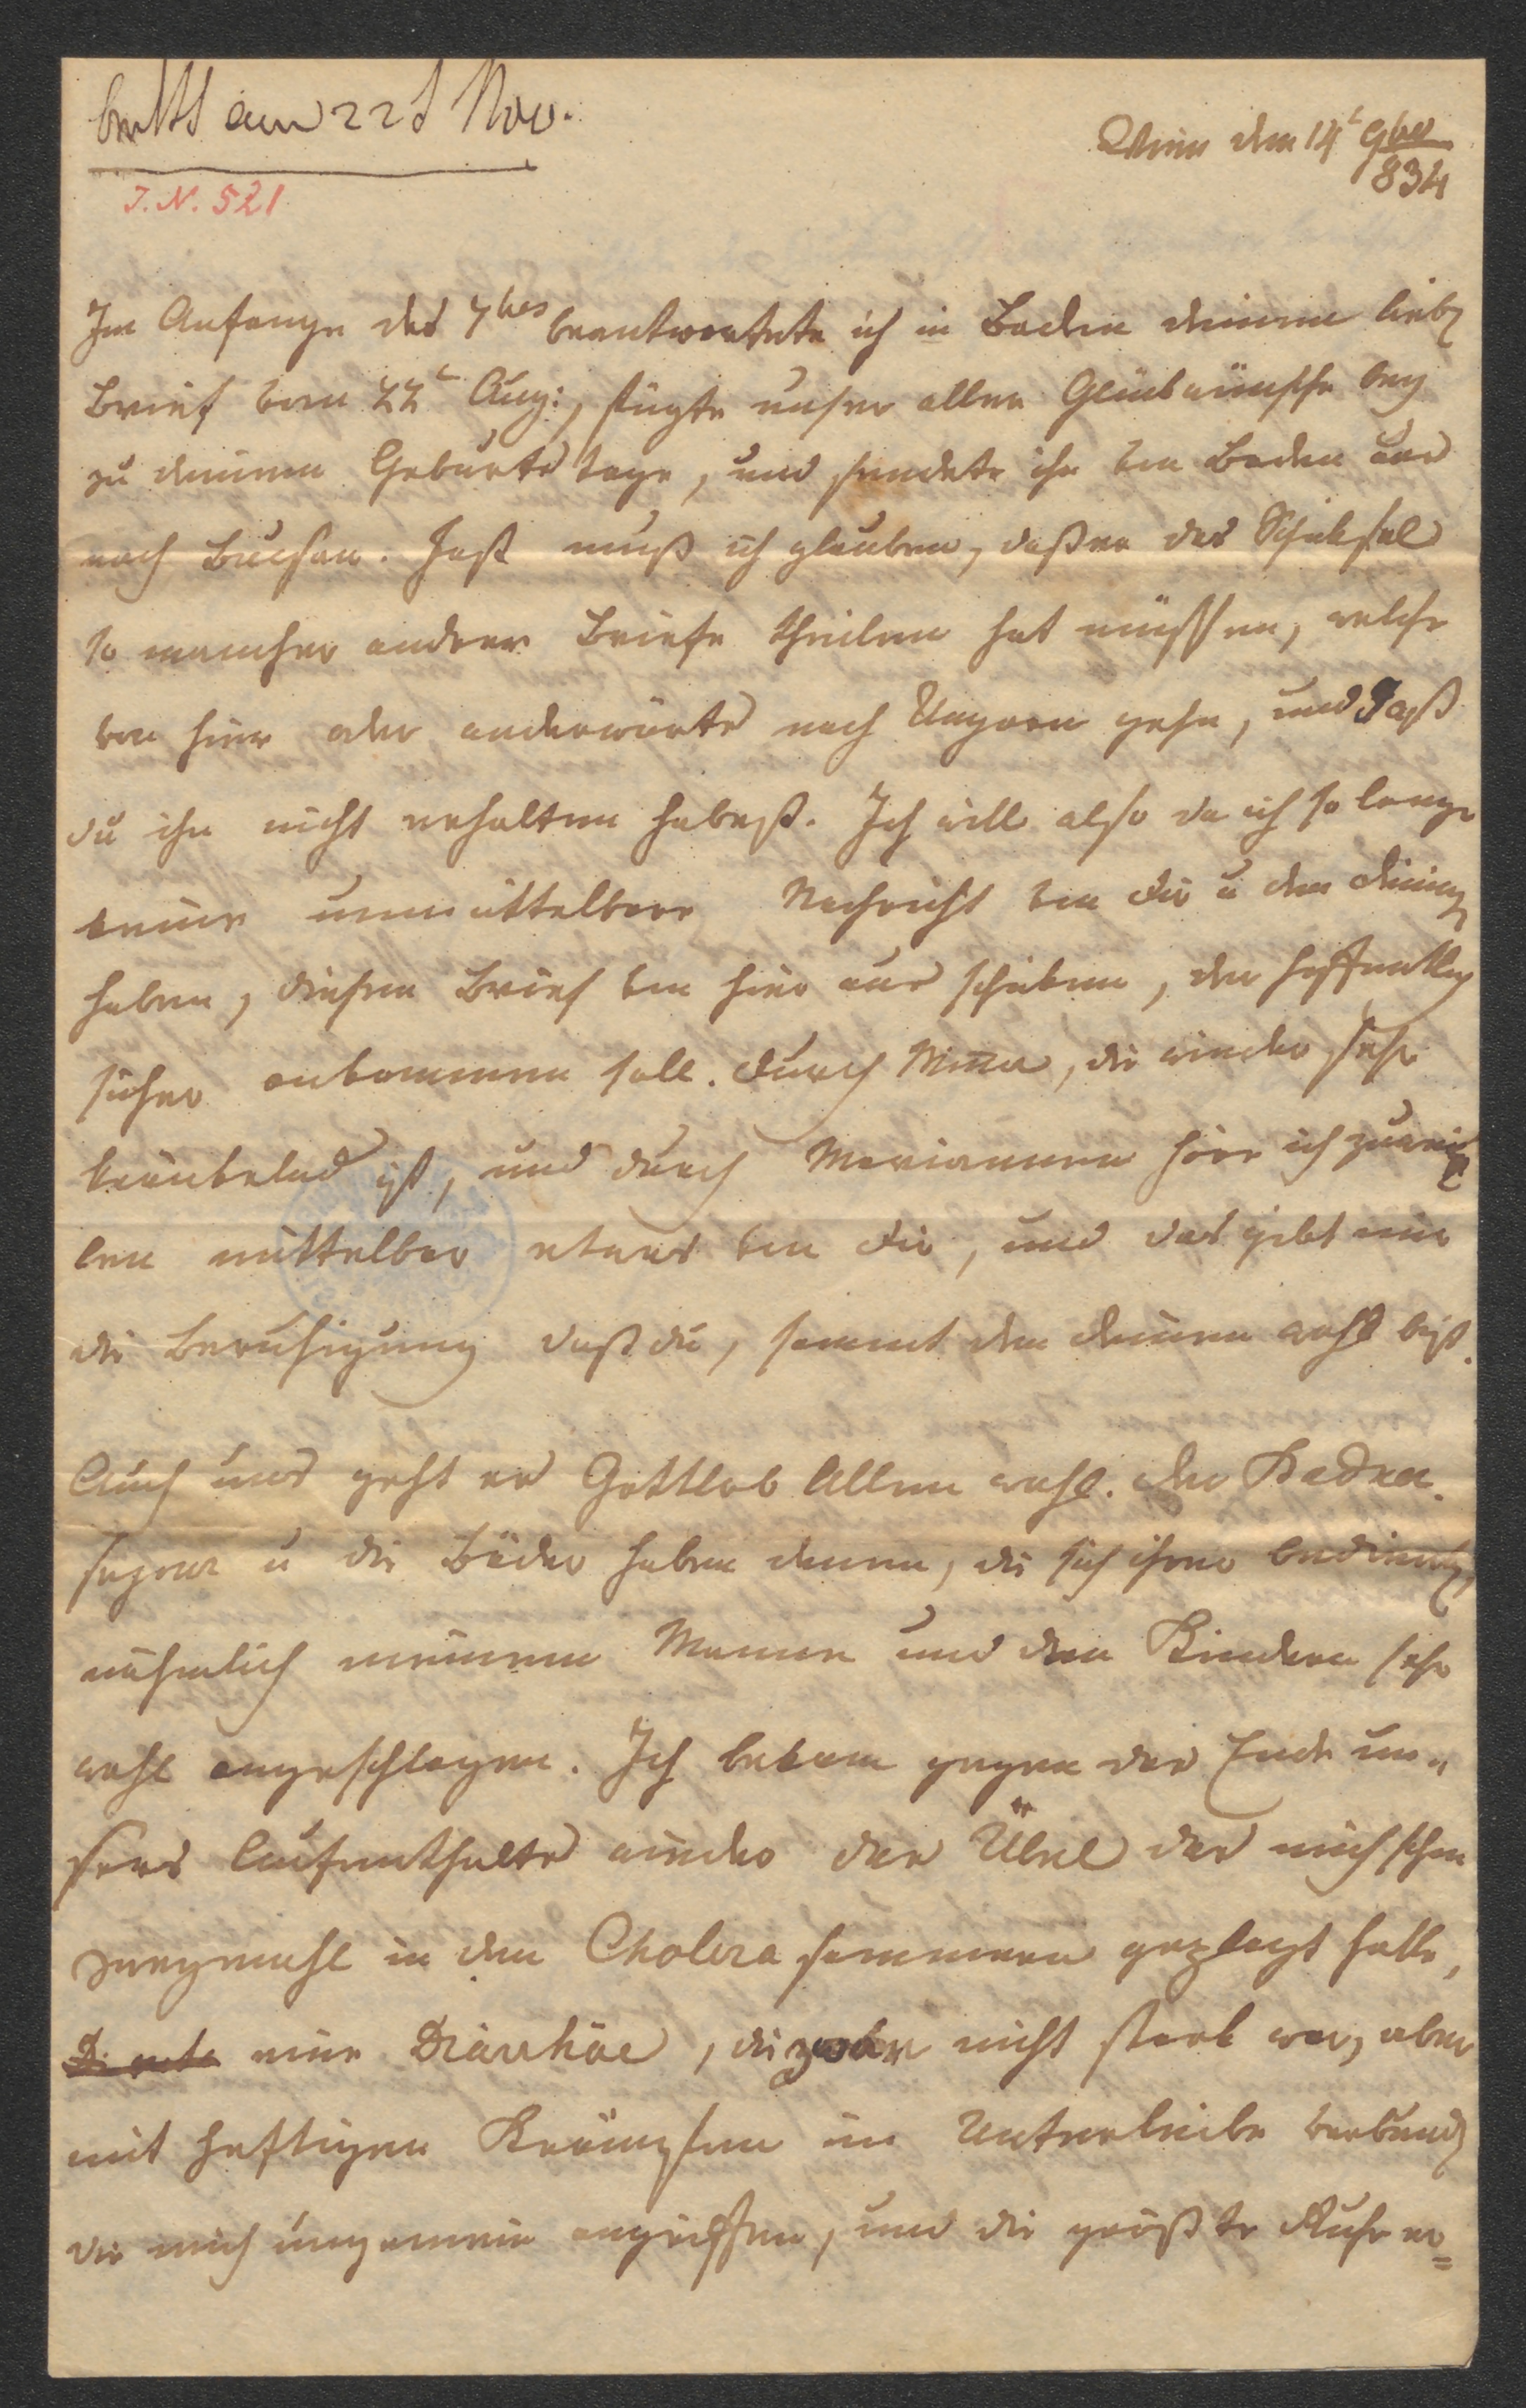 am 22t Nov.
Wien den 14t 9ber
834
J. N. 521
Im Anfange des 7bes beantwortete ich in Baden deinen lieben
Brief vom 22t Aug:, fügte unser aller Glückwünsche bey
zu deinem Geburtstage, und sendete ihn von Baden aus
nach Bucsan. Fast muß ich glauben, daß er das Schicksal
so mancher andrer Briefe theilen hat müssen, welche
von hier oder anderwärts nach Ungarn gehn, und daß
du ihn nicht erhalten habest. Ich will also da ich so lange
keine unmittelbare Nachricht von dir u den deinen
haben, diesen Brief von hier aus schicken, der hoffentlich
sicher ankommen soll. Durch Mina, die wieder sehr
kränkelnd ist, und durch Mariannen höre ich zuwei
len mittelbar etwas von dir, und das gibt mir
die Beruhigung daß du, sammt den deinen wohl bist.
Auch uns geht es Gottlob Allen wohl. Der Badner
u die Bäder haben denen, die sich ihrer bedienten,
nähmlich meinem Manne und den Kindern sehr
wohl angeschlagen. Ich bekam gegen das Ende un„
sers Aufenthalts wieder das Übel das mich schon
zweymahl in den Cholera sommern geplagt hatte,
eine Diarrhöe, die zwar nicht stark war, aber
mit heftigen Krämpfen im Unterleibe verbunden
die mich ungemein angriffen, und die größte Ruhe er=